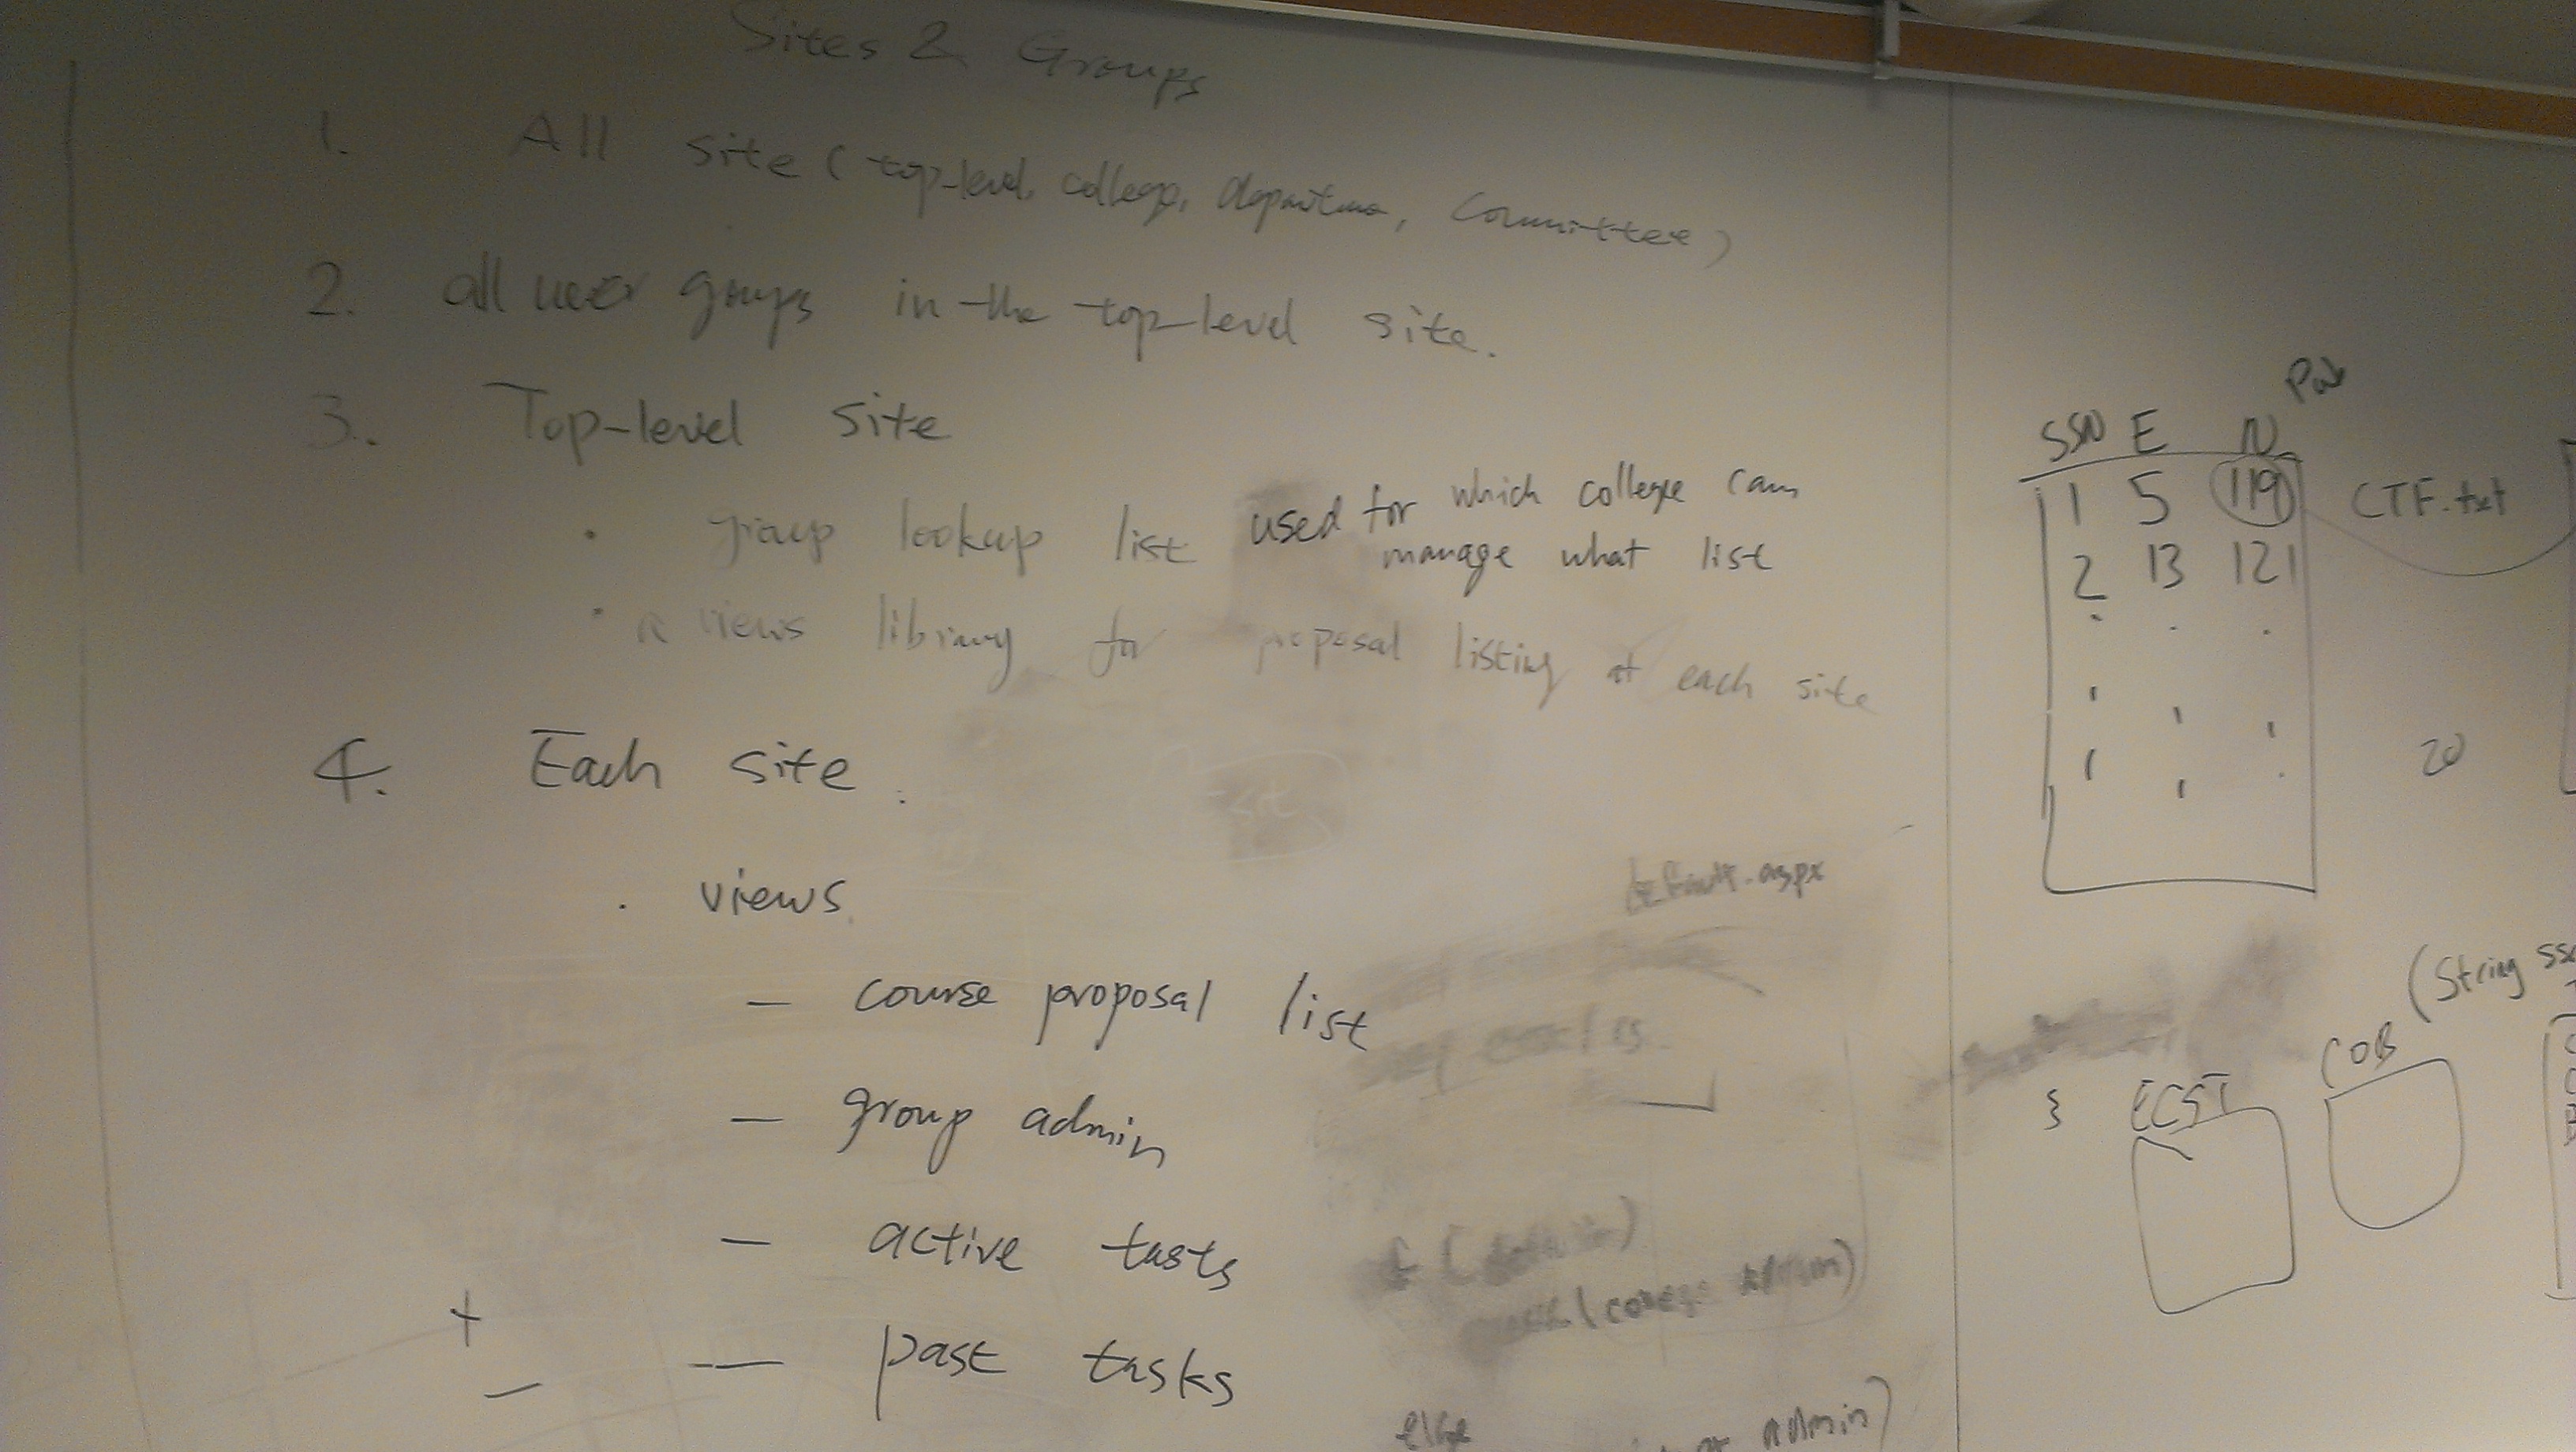 Sites & Groups
1. All site (top-level, college, department, committee)
2. all user groups in the top-level site.
3. Top-level site
· group lookup list used for which college can
manage what list
· views library for proposal listing at each site
4. Each site.
· views
— course proposal list
— group admin
— active tasks
+
— past tasks
—
default.aspx
else
admin)
SSN E N
1 5 119
2 13 121
CTF.txt
20
(String
} ECST
COB